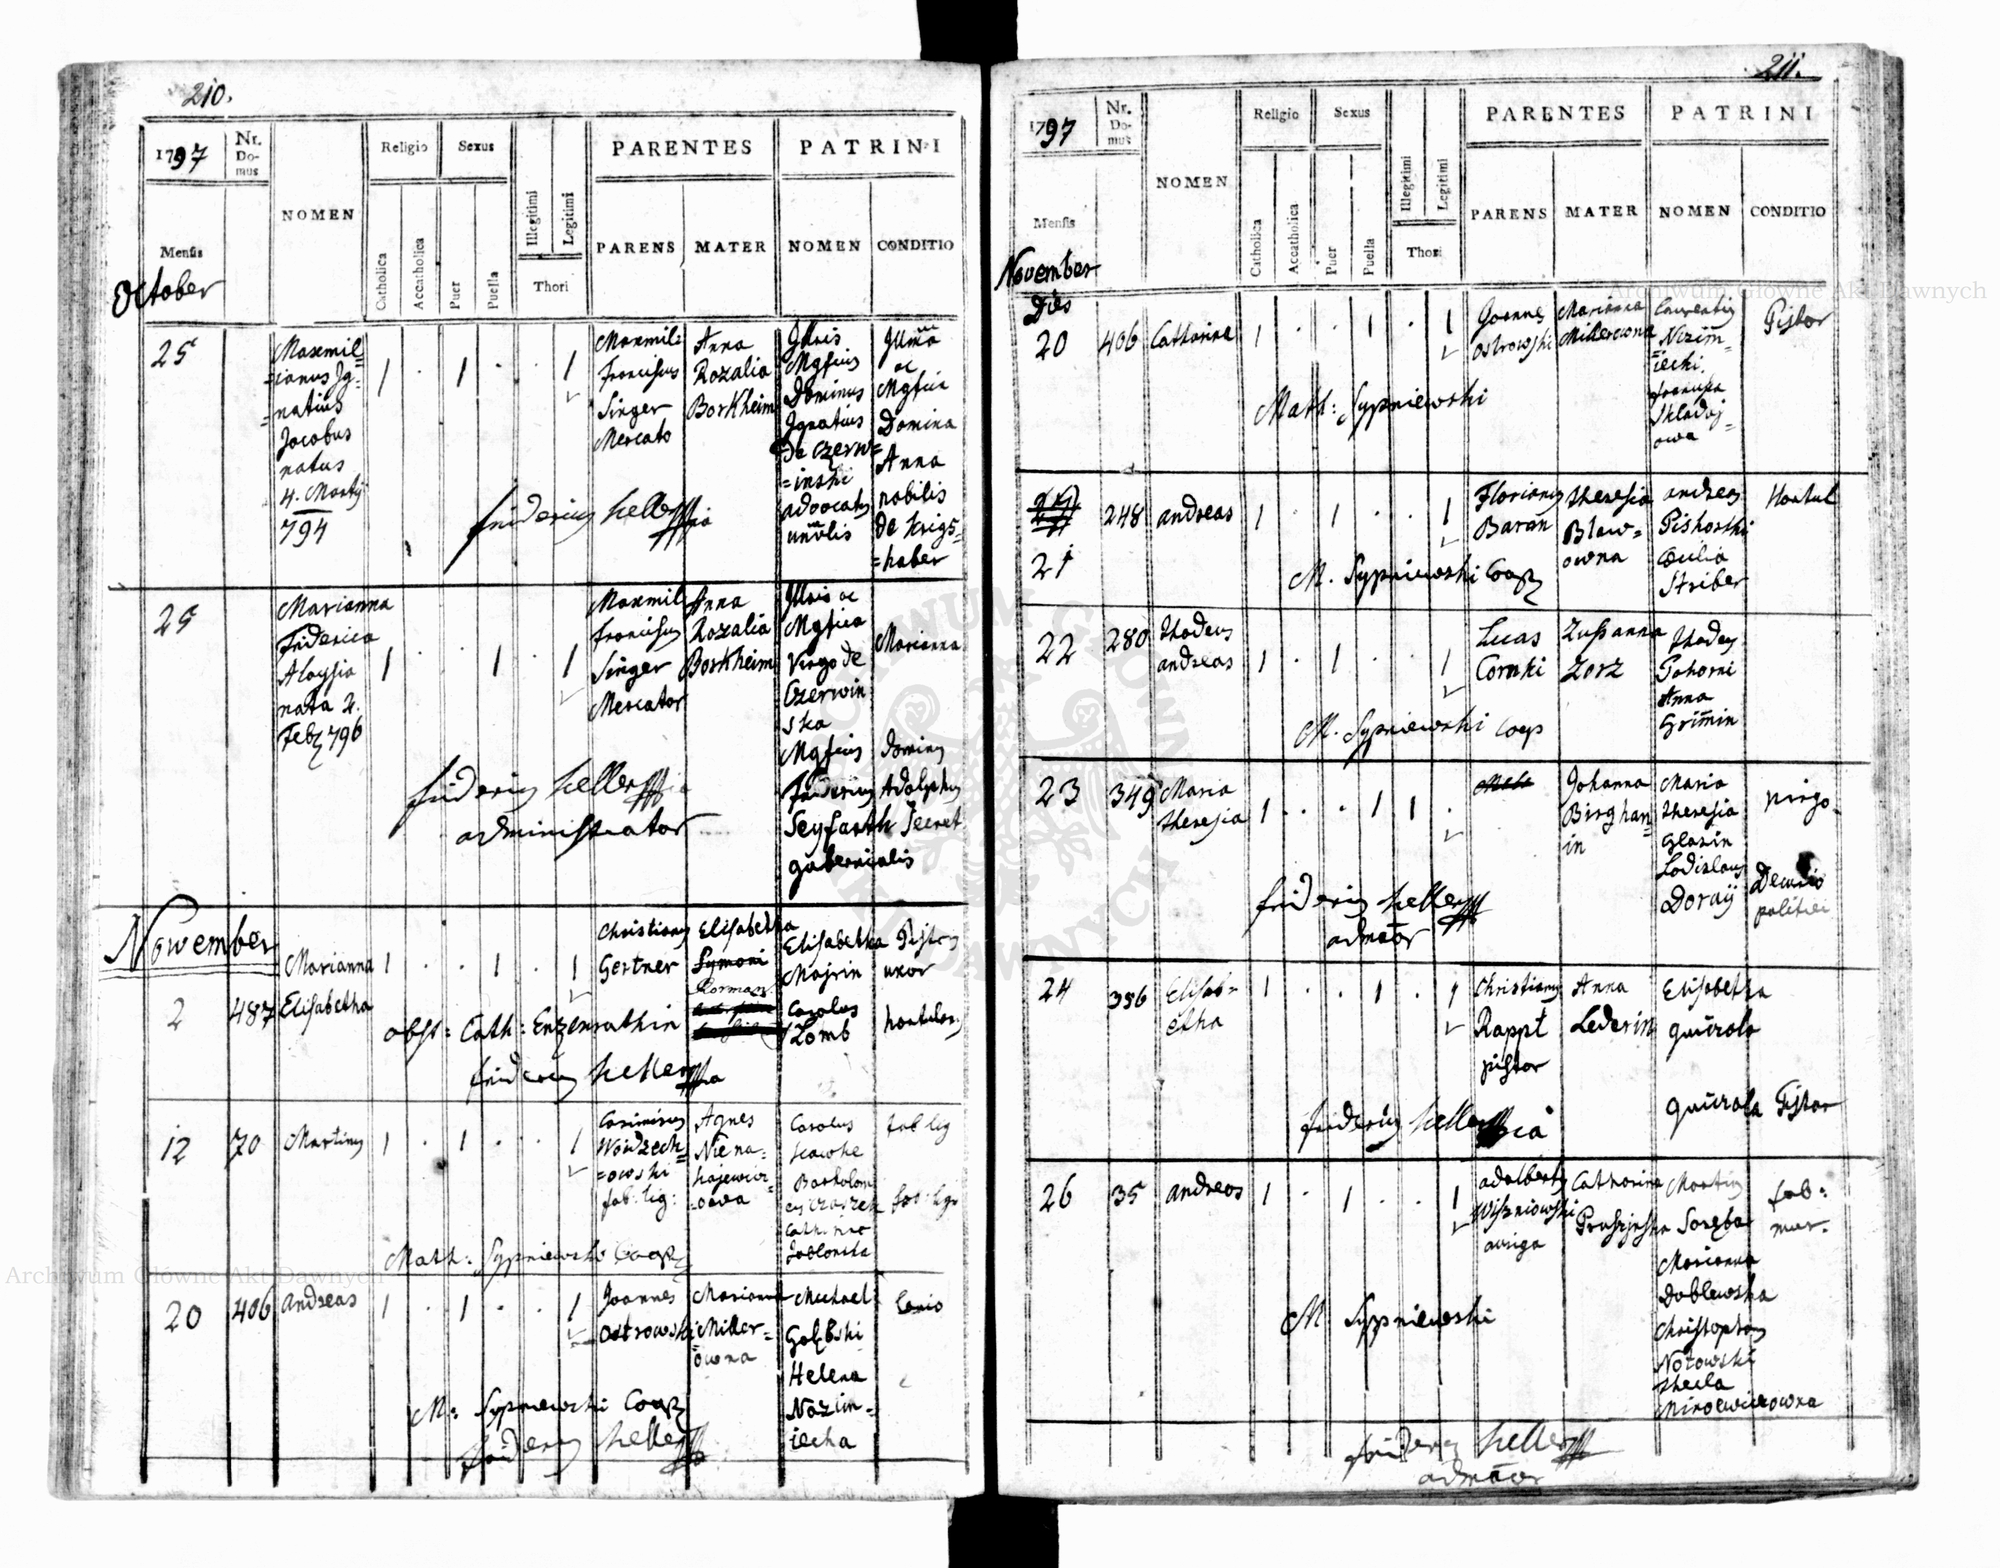 210.
1797
Nr. Do-mus
NOMEN
Religio
Sexus
PARENTES
PATRINI
Mensis
Catholica
Accatholica
Puer
Puella
Illegitimi
Legitimi
Thori
PARENS
MATER
NOMEN
CONDITIO
October
25
Maxmil=
=ianus Ig=
=natius
Jacobus
natus
4. Martij
794
Maxmil:
Franciscus
Singer
Mercato
Anna
Rozalia
Borkheim
Illris
Mgficus
Dominus
Ignatius
de Czerw=
=inski
advocatus
Illma
ac
Mgfica
Domina
Anna
nobilis
de Krigs=
=haber
Fridericus Heller
25
Marianna
Friderica
Aloysia
nata 2.
Feb 796
Maxmil
Franciscus
Singer
Mercator
Anna
Rozalia
Borkheim
Illris ac
Mgfica
Virgo de
Czerwin
ska
Mgficus
Fridericus
Seyfarth
gubernialis
Marianna
Dominus
Adolphus
Secret
Fridericus Heller
administrator
November
2
487
Marianna
Elisabetha
Christianus
Gertner
Elisabetha
Symoni
Korman
Elisabetha
Majrin
Carolus
Lomb
Pistoris
uxor
hortulan:
obst: Cath: Enzenrathin
Fridericus Heller
12
70
Martinus
Casimirus
Woidzech=
=owski
fab: lig:
Agnes
Niena=
hajewicz=
=owa
Carolus
Hawke
Bartholom
Cath:
Jablonska
fab lig
fab: lig:
Math: Sypniewski Coop
20
406
Andreas
Joannes
Ostrowski
Marianna
Miller=
owna
Michael
Gołębski
Helena
Nozim=
iecka
Lanio
M: Sypniewski Coop
Fridericus Heller
211.
1797
Nr. Do-mus
NOMEN
Religio
Sexus
PARENTES
PATRINI
Mensis
Catholica
Accatholica
Puer
Puella
Illegitimi
Legitimi
Thori
PARENS
MATER
NOMEN
CONDITIO
November
Dies
20
406
Catharina
Joannes
Ostrowski
Marianna
Millerowna
Laurentius
Nizim=
iecki.
Franciska
Skladij=
owa
Pistor
Math: Sypniewski
21
248
Andreas
Florianus
Baran
Theresia
Blaw=
owna
Andreas
Piskorski
Cecilia
Striber
Hortul
M. Sypniewski Coop
22
280
Thadeus
Andreas
Lucas
Cornki
Zussanna
Zorz
Thadeus
Pohorni
Anna
Grimin
M. Sypniewski Coop
23
349
Maria
Theresia
Johanna
Birghan=
in
Maria
Theresia
Glasin
Ladislaus
Doraij
virgo
Decurio
politiei
Fridericus Heller
admator
24
356
Elisab=
etha
Christianus
Rappt
pistor
Anna
Lederin
Elisabetha
Quirola
Quirola
Pistor
Fridericus Heller
26
35
Andreas
Adalbertus
Wiszniowski
auriga
Catharina
Martinus
Soręba
Marianna
Doblewska
Christophorus
Notowski
Thecla
Mirowiczowna
fab:
mur:
M Sypniewski
Fridericus Heller
admator
Archiwum Główne Akt Dawnych